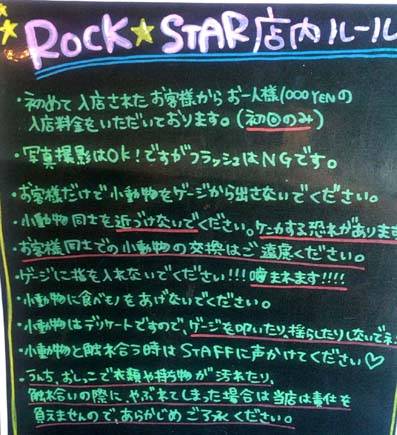 ROCK☆STAR店内ルール
・初めて入店されたお客様からお一人様1000YENの
入店料金をいただいております。(初回のみ)
・写真撮影はOK!ですがフラッシュはNGです。
・お客様だけで小動物をゲージから出さないでください。
・小動物同士を近づけないでください。ケンカする恐れがありま
お客様同士での小動物の交換はご遠慮ください。
・ゲージに指を入れないでください!!!噛まれます!!!!
・小動物に食べモノをあげないでください。
・小動物はデリケートですので、ゲージを叩いたり、揺らしたりしないで
・小動物と触れ合う時はSTAFFに声かけてください♡
・うんち、おしっこで衣類や持ち物が汚れたり、
触れ合いの際に、やぶれてしまった場合は当店は責任を
負えませんので、あらかじめご了承ください。